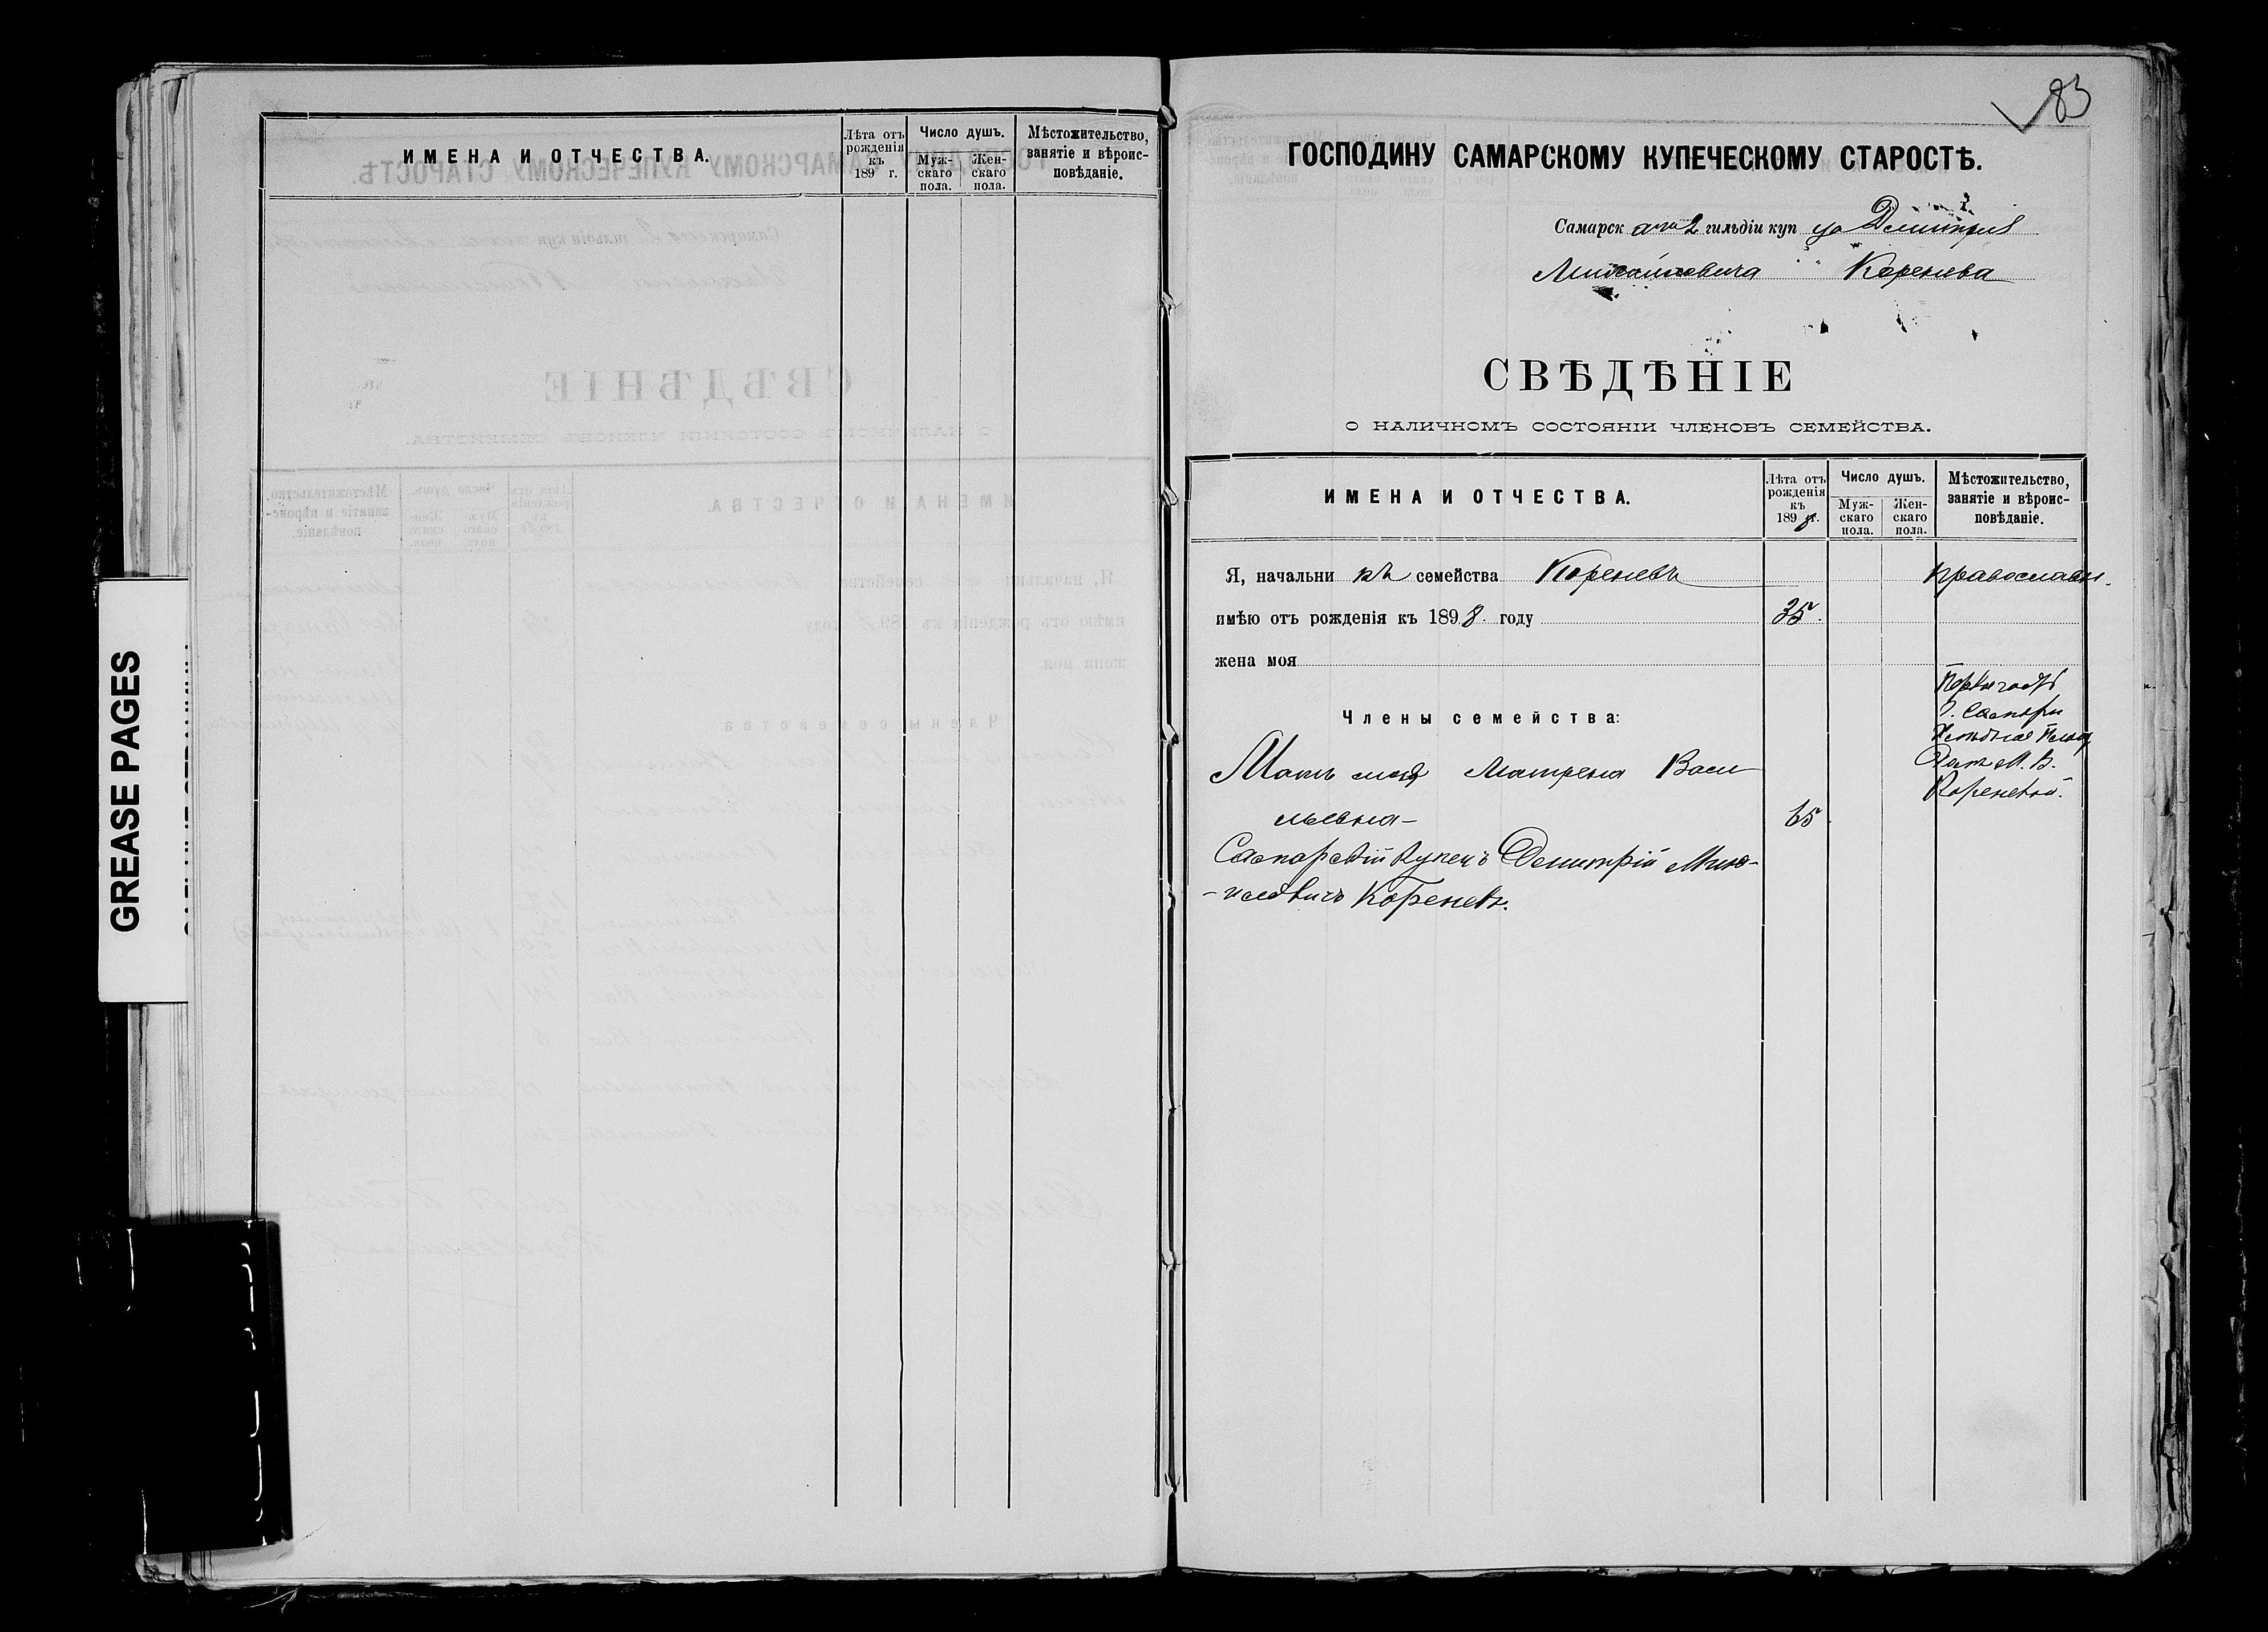 GREASE PAGES
ИМЕНА И ОТЧЕСТВА.
Лѣта отъ рожденія къ 189 г.
Число душъ.
Мужскаго пола.
Женскаго пола.
Мѣстожительство, занятіе и вѣроисповѣданіе.
83
ГОСПОДИНУ САМАРСКОМУ КУПЕЧЕСКОМУ СТАРОСТѢ.
Самарск аго 2 гильдіи куп ца Дмитрія
Михайловича Коренева
СВѢДѢНІЕ
О НАЛИЧНОМЪ СОСТОЯНІИ ЧЛЕНОВЪ СЕМЕЙСТВА.
ИМЕНА И ОТЧЕСТВА.
Лѣта отъ рожденія къ 1898 г.
Число душъ.
Мужскаго пола.
Женскаго пола.
Мѣстожительство, занятіе и вѣроисповѣданіе.
Я, начальни къ семейства Кореневъ православн.
имѣю отъ рожденія къ 1898 году 35.
жена моя
Члены семейства:
Мать моя Матрена Васи
льевна 65
г. Самары
М. В.
Кореневой.
Самарскій Купецъ Дмитрій Миха-
-иловичъ Кореневъ.